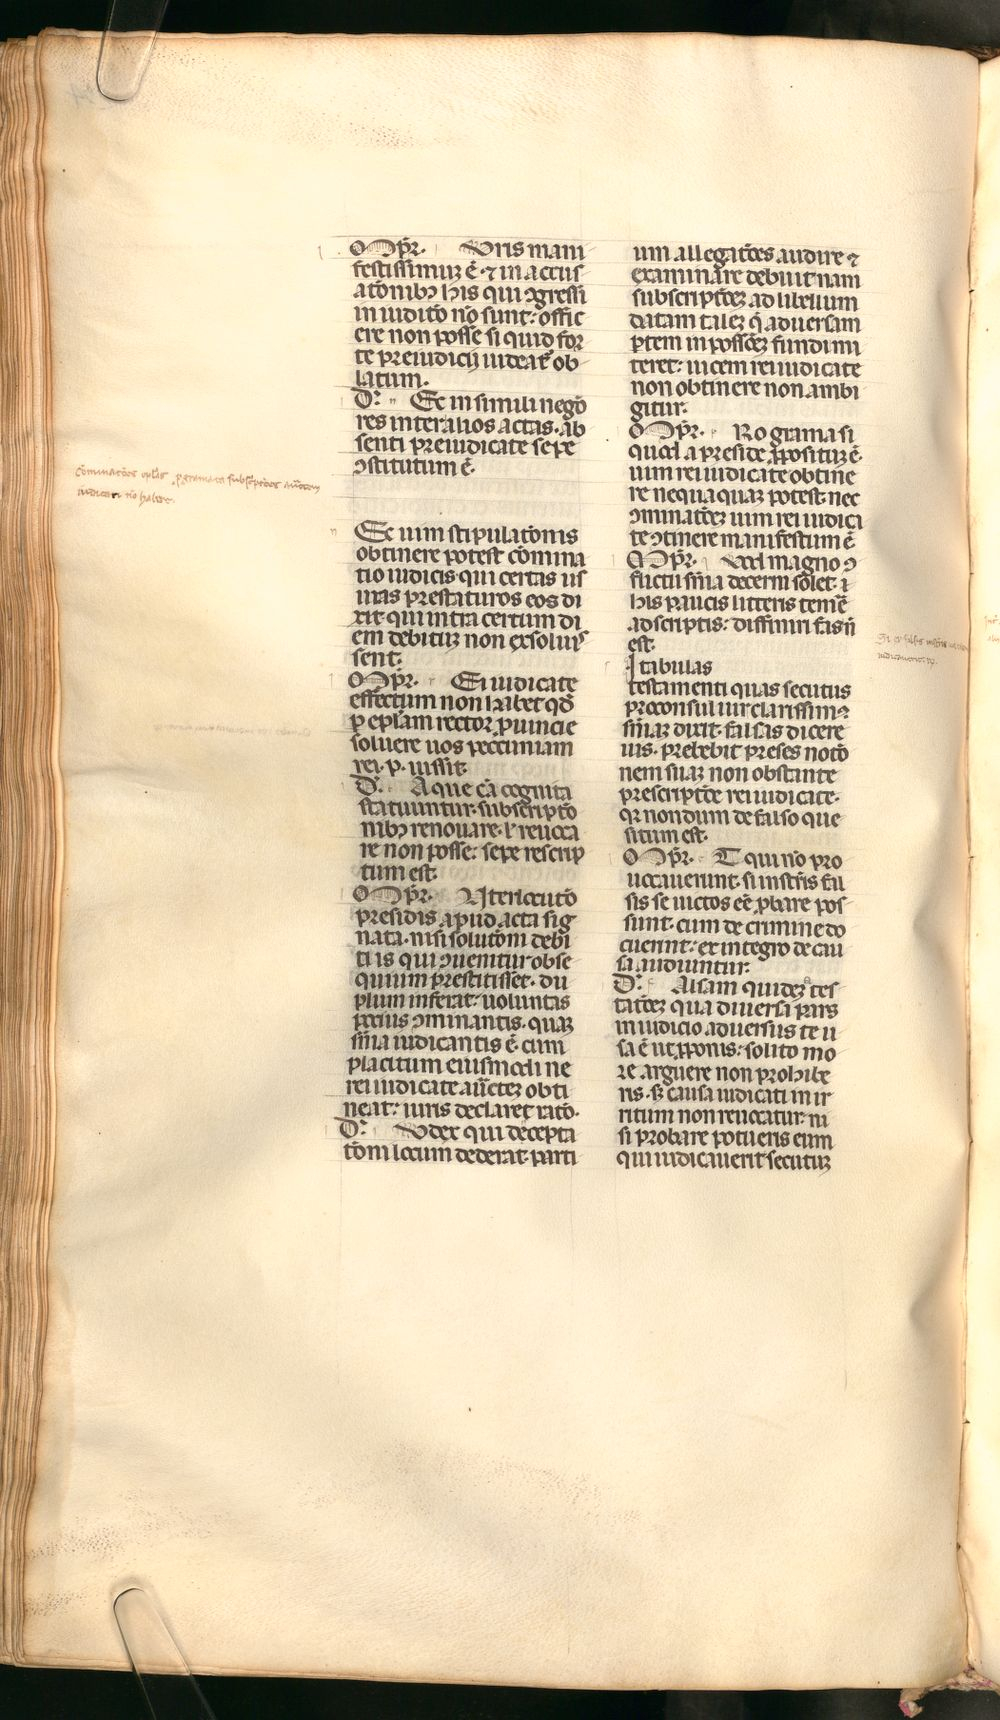 O Īpr̄. Vris mani
festissimuꝫ ē. ⁊ in accus
atōnibꝫ his qui ↄgressi
in iuditō nō sunt: offic
ere non posse si quid for
te preiudicij uideat̄ ob
latum.
D͛. Ec in simili negō
res inter alios actas. ab
senti preiudicate sepe
ↄstitutum ē.
Ec uim stipulatōnis
obtinere potest cōmina
tio iudicis qui certas us
uras prestaturos eos di
xit qui intra certum di
em debituꝫ non exsoluiſ
sent.
O Īpr̄. Ei iudicate
effectum non habet qđ
p epl̄am rector ꝓuincie
soluere uos peccuniam
rei. p. iussit.
D͛. A que cā cognita
statuuntur. subscriptō
nibꝫ renouare. l' reuoca
re non posse: sepe rescrip
tum est.
O Īpr̄. Nterlocutō
presidis apud acta sig
nata. nisi solutōni debi
ti is qui ↄuenitur obse
quium prestitisset. du
plum inferat: uoluntas
potius ↄminantis. quaꝫ
sn̄ia iudicantis ē. cum
placitum eiusmodi ne
rei iudicate aūcteꝫ obti
neat: iuris declaret ratō.
D͛. Vdex qui decepta
tōni locum dederat parti
um allegatōes audire ⁊
examinare debuit nam
subscriptōeꝫ ad libellum
datam taleꝫ q̄ aduersam
ꝑtem in possōeꝫ fundi mi
teret: uicem rei iudicate
non obtinere non ambi
gitur.
O Īpr̄. Rograma si
quod a preside ꝓpositum ē.
uim rei iudicate obtine
re nequaquaꝫ potest nec
ↄminatōeꝫ uim rei iudici
te ↄtinere manifestum ē
O Īpr̄. Vod magno ↄ
flictu sn̄ia decerni solet. ī
his paucis litteris temē
adscriptis: diffiniri fas ñ
est.
I tabulas
testamenti quas secutus
proconsul uir clarissimꝰ
sn̄iaꝫ dixit. falsas dicere
uis. prebebit preses notō
nem suaꝫ non obstante
prescriptōe rei iudicate.
qꝛ nondum de falso que
situm est.
O Īpr̄. T qui nō pro
uocauerunt. si instr̄is fal
sis se uictos eē ꝓbare pos
sunt. cum de crimine do
cuerint: ex integro de cau
sa audiuntur.
D͛. Alsam quideꝫ tes
tatōeꝫ qua diuersa pars
in iudicio aduersus te u
sa ē ut ꝓponis: solito mo
re arguere non prohibe
ris. s̄ causa iudicati in ir
ritum non reuocatur. ni
si probare potueris eum
qui iudicauerit secutuꝫ
Cōminatōes epl̄as programata subscriptōes aūctem
iudicati nō habere.